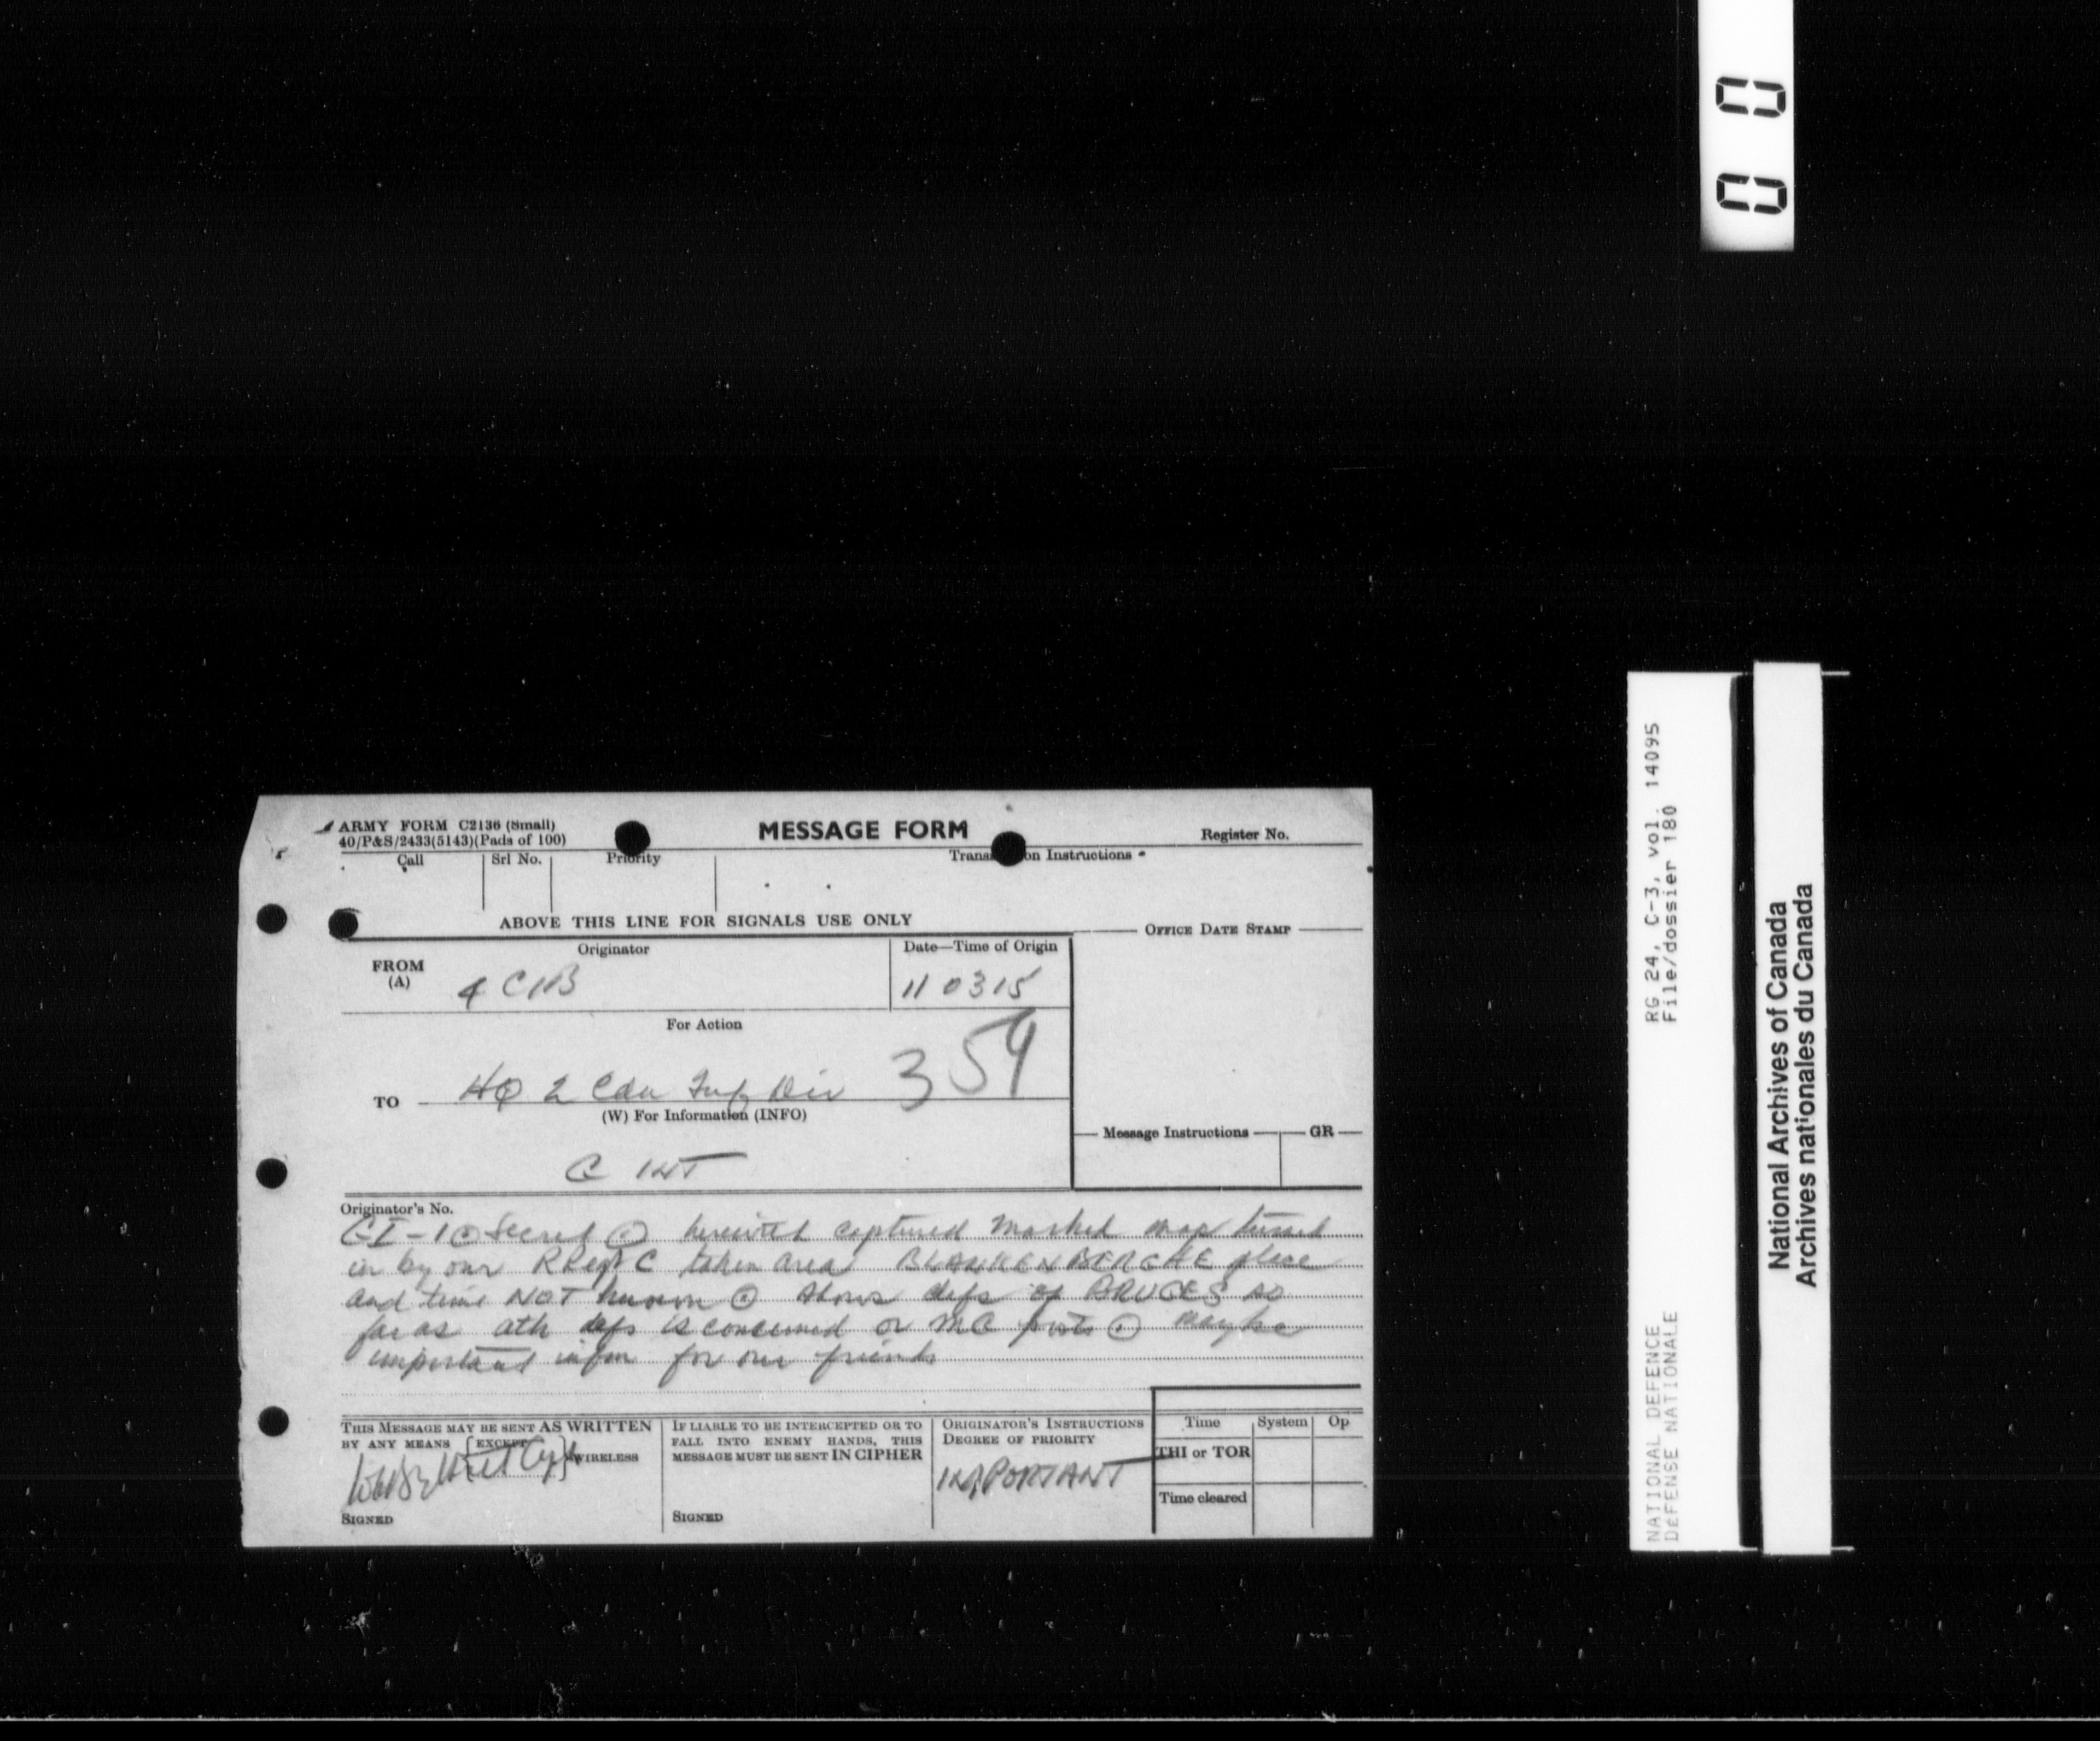 ARMY FORM C2136 (Small)
40/P&S/2433(5143)(Pads of 100)
MESSAGE FORM
Register No.
Call
Srl No.
Priority
Transmission Instructions
ABOVE THIS LINE FOR SIGNALS USE ONLY
OFFICE DATE STAMP
FROM
(A)
Originator
Date—Time of Origin
4 CIB
11 0315
For Action
359
TO
HQ 2 Cdn Inf Div
(W) For Information (INFO)
Message Instructions
GR
G INT
Originator's No.
GI-1 ⊙ Secret ⊙ herewith captured marked map turned
in by our R Regt C taken area BLANKENBERGHE place
and time NOT known ⊙ shows defs of BRUGES so
far as atk defs is concerned or MG posts ⊙ maybe
important infm for our friends
THIS MESSAGE MAY BE SENT AS WRITTEN
BY ANY MEANS {EXCEPT} WIRELESS
SIGNED
IF LIABLE TO BE INTERCEPTED OR TO
FALL INTO ENEMY HANDS, THIS
MESSAGE MUST BE SENT IN CIPHER
SIGNED
ORIGINATOR'S INSTRUCTIONS
DEGREE OF PRIORITY
IMPORTANT
Time
System
Op
THI or TOR
Time cleared
0 0
RG 24, C-3, vol. 14095
File/dossier 180
NATIONAL DEFENCE
DÉFENSE NATIONALE
National Archives of Canada
Archives nationales du Canada